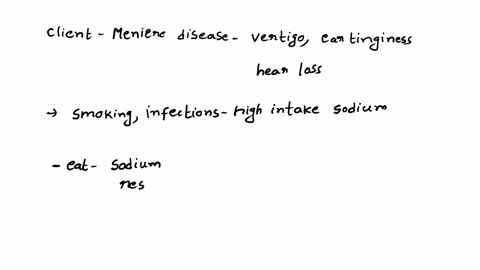 Client - Meniere disease - vertigo, ear tinginess
hear loss
→ smoking, infections - high intake sodium
- eat - Sodium
res